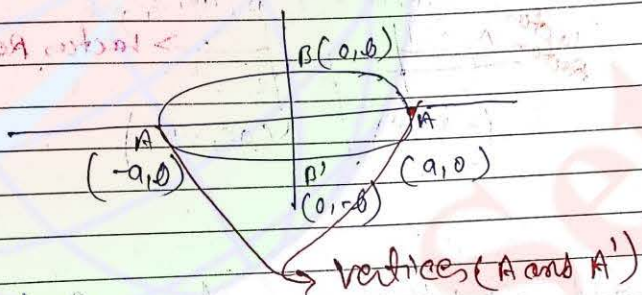 B(0,b)
A
A
(-a,0)
B'
(0,-b)
(a,0)
vertices (A and A')